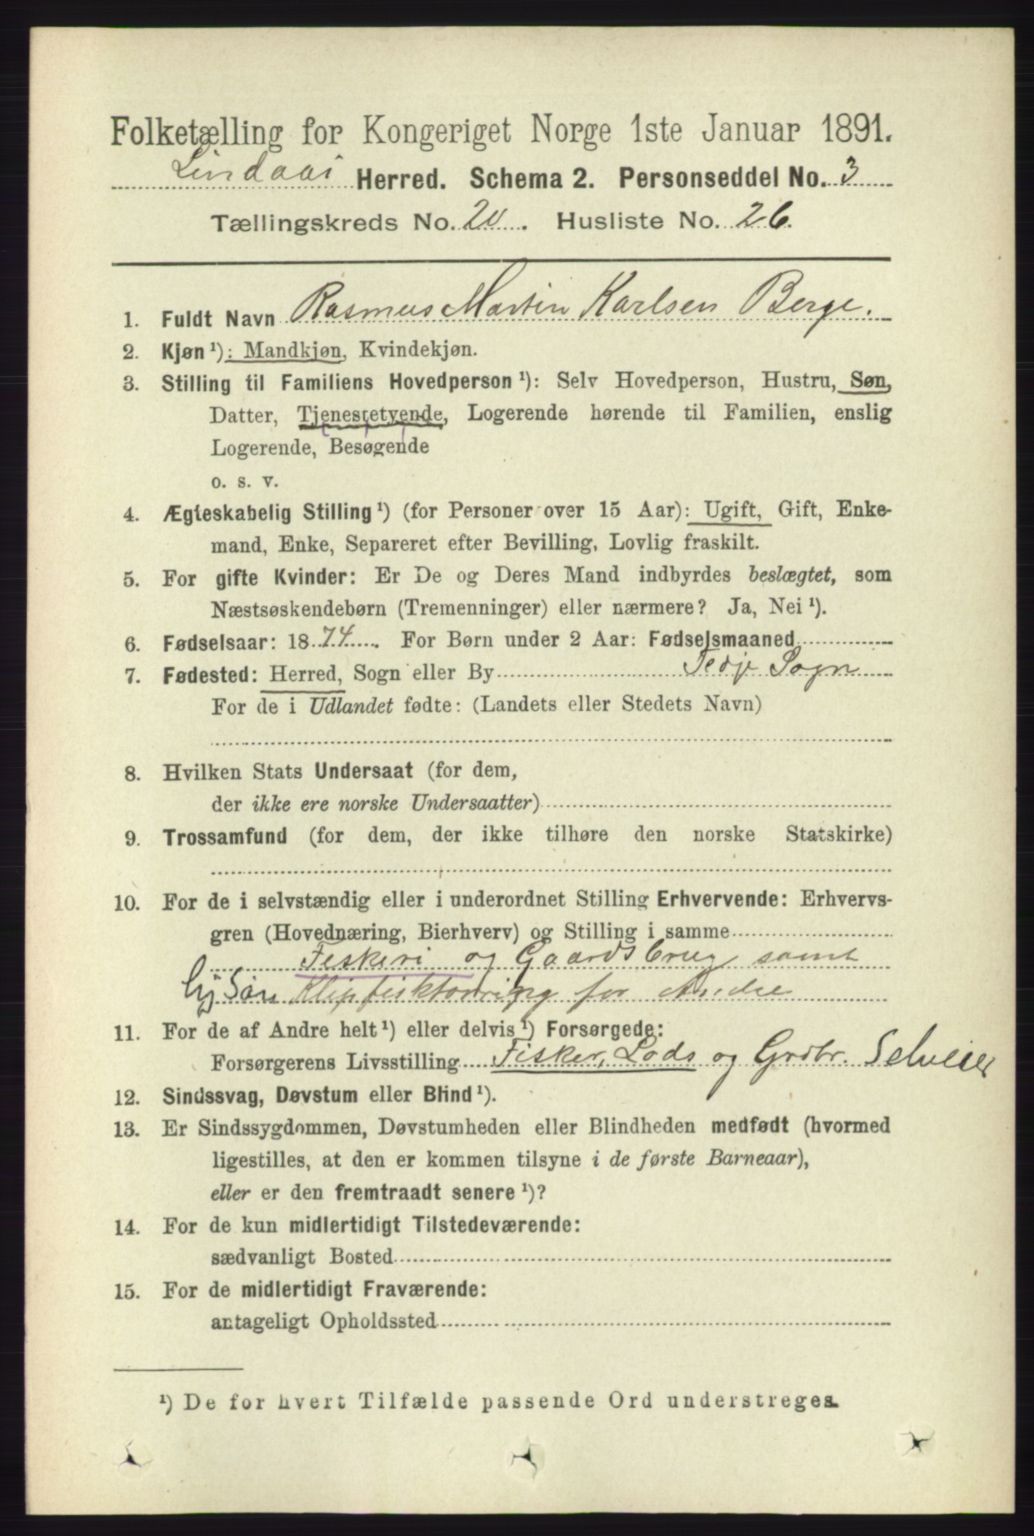 Folketælling for Kongeriget Norge 1ste Januar 1891.
Lindaas Herred. Schema 2. Personseddel No. 3
Tællingskreds No. 20. Husliste No. 26.
1. Fuldt Navn Rasmus Martin Karlsen Berge.
2. Kjøn ¹): Mandkjøn, Kvindekjøn.
3. Stilling til Familiens Hovedperson ¹): Selv Hovedperson, Hustru, Søn,
Datter, Tjenestetyende, Logerende hørende til Familien, enslig
Logerende, Besøgende
o. s. v.
4. Ægteskabelig Stilling ¹) (for Personer over 15 Aar): Ugift, Gift, Enke-
mand, Enke, Separeret efter Bevilling, Lovlig fraskilt.
5. For gifte Kvinder: Er De og Deres Mand indbyrdes beslægtet, som
Næstsøskendebørn (Tremenninger) eller nærmere? Ja, Nei ¹).
6. Fødselsaar: 1874. For Børn under 2 Aar: Fødselsmaaned
7. Fødested: Herred, Sogn eller By Fedje Sogn
For de i Udlandet fødte: (Landets eller Stedets Navn)
8. Hvilken Stats Undersaat (for dem,
der ikke ere norske Undersaatter)
9. Trossamfund (for dem, der ikke tilhøre den norske Statskirke)
10. For de i selvstændig eller i underordnet Stilling Erhvervende: Erhvervs-
gren (Hovednæring, Bierhverv) og Stilling i samme
Fiskeri og Gaardsbrug samt
Søn Klipfisktørring for Andre
11. For de af Andre helt ¹) eller delvis ¹) Forsørgede:
Forsørgerens Livsstilling Fisker, Lods og Grdbr. Selveier
12. Sindssvag, Døvstum eller Blind ¹).
13. Er Sindssygdommen, Døvstumheden eller Blindheden medfødt (hvormed
ligestilles, at den er kommen tilsyne i de første Barneaar),
eller er den fremtraadt senere ¹)?
14. For de kun midlertidigt Tilstedeværende:
sædvanligt Bosted
15. For de midlertidigt Fraværende:
antageligt Opholdssted
¹) De for hvert Tilfælde passende Ord understreges.